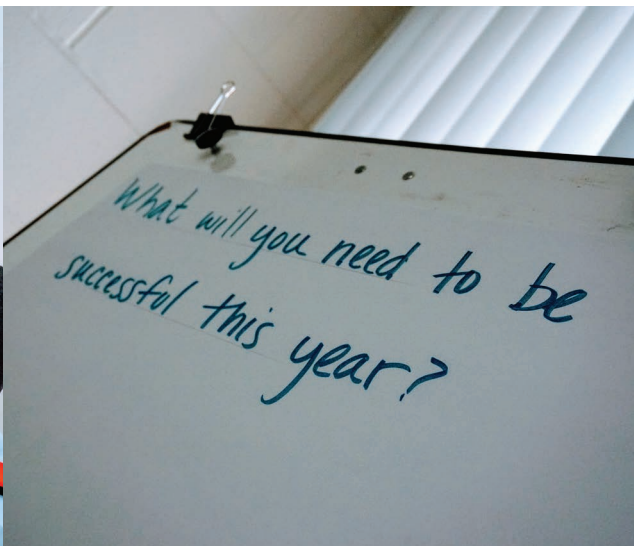 What will you need to be
successful this year?